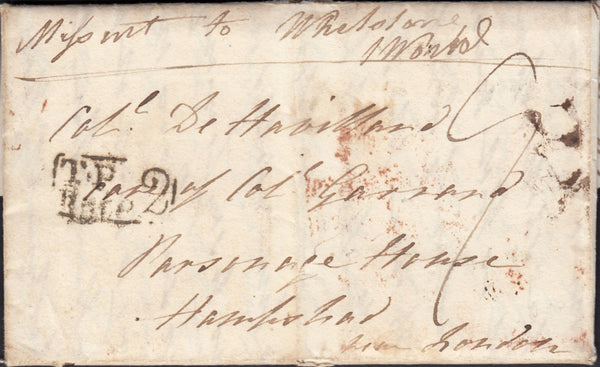 Missent to Whetstone
Col.l De Havilland
T.P
2
Care of Col.l Garrard
Parsonage House
Hampstead
near London